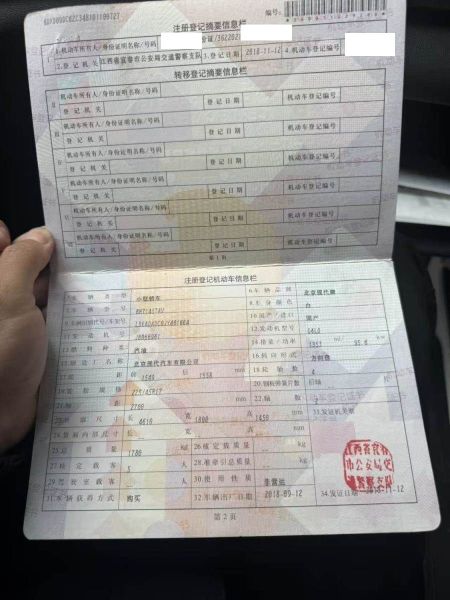 注册登记摘要信息栏
编号:
1.机动车所有人/身份证明名称/号码 362202
2.登记机关 江西省宜春市公安局交通警察支队 3.登记日期 2018-11-12 4.机动车登记编号
转移登记摘要信息栏
机动车所有人/身份证明名称/号码
登记机关 登记日期 机动车登记编号
机动车所有人/身份证明名称/号码
登记机关 登记日期 机动车登记编号
机动车所有人/身份证明名称/号码
登记机关 登记日期 机动车登记编号
机动车所有人/身份证明名称/号码
登记机关 登记日期 机动车登记编号
机动车所有人/身份证明名称/号码
登记机关 登记日期 机动车登记编号
机动车所有人/身份证明名称/号码
登记机关 登记日期 机动车登记编号
第1页
注册登记机动车信息栏
5.车辆类型 小型轿车 6.车辆品牌 北京现代牌
7.车辆型号 8.车身颜色 白
9.车辆识别代号/车架号 10.国产/进口 国产
11.发动机号 12.发动机型号 G4LC
13.燃料种类 汽油 14.排量/功率 ml/ kw
15.制造厂名称 北京现代汽车有限公司 16.转向形式 方向盘
17.轮距 前 1549 后 1558 mm 18.轮胎数 4
19.轮胎规格 20.钢板弹簧片数 后轴
21.轴距 2700 mm 22.轴数 2
23.外廓尺寸 长 4610 宽 1800 高 1450 mm 33.发证机关章
24.货厢内部尺寸 长 宽 高 mm
25.总质量 kg 26.核定载质量 kg
27.核定载客 5 人 28.准牵引总质量 kg
29.驾驶室载客 人 30.使用性质 非营运
31.车辆获得方式 购买 32.车辆出厂日期 2018-09-12 34.发证日期 2018-11-12
第2页